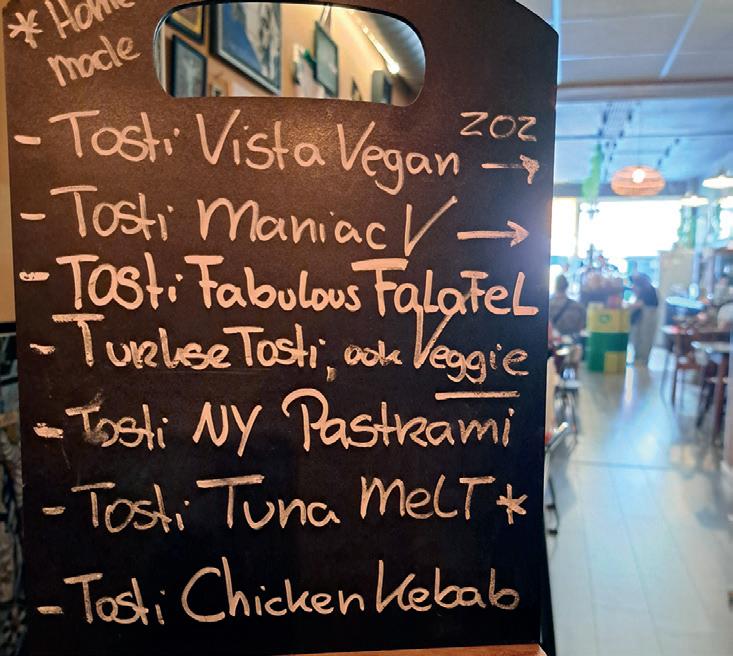 * Home
made
ZOZ
- Tosti Vista Vegan →
- Tosti Maniac V →
- Tosti Fabulous Falafel
- Turkse Tosti, ook Veggie
- Tosti NY Pastrami
- Tosti Tuna Melt *
- Tosti Chicken Kebab